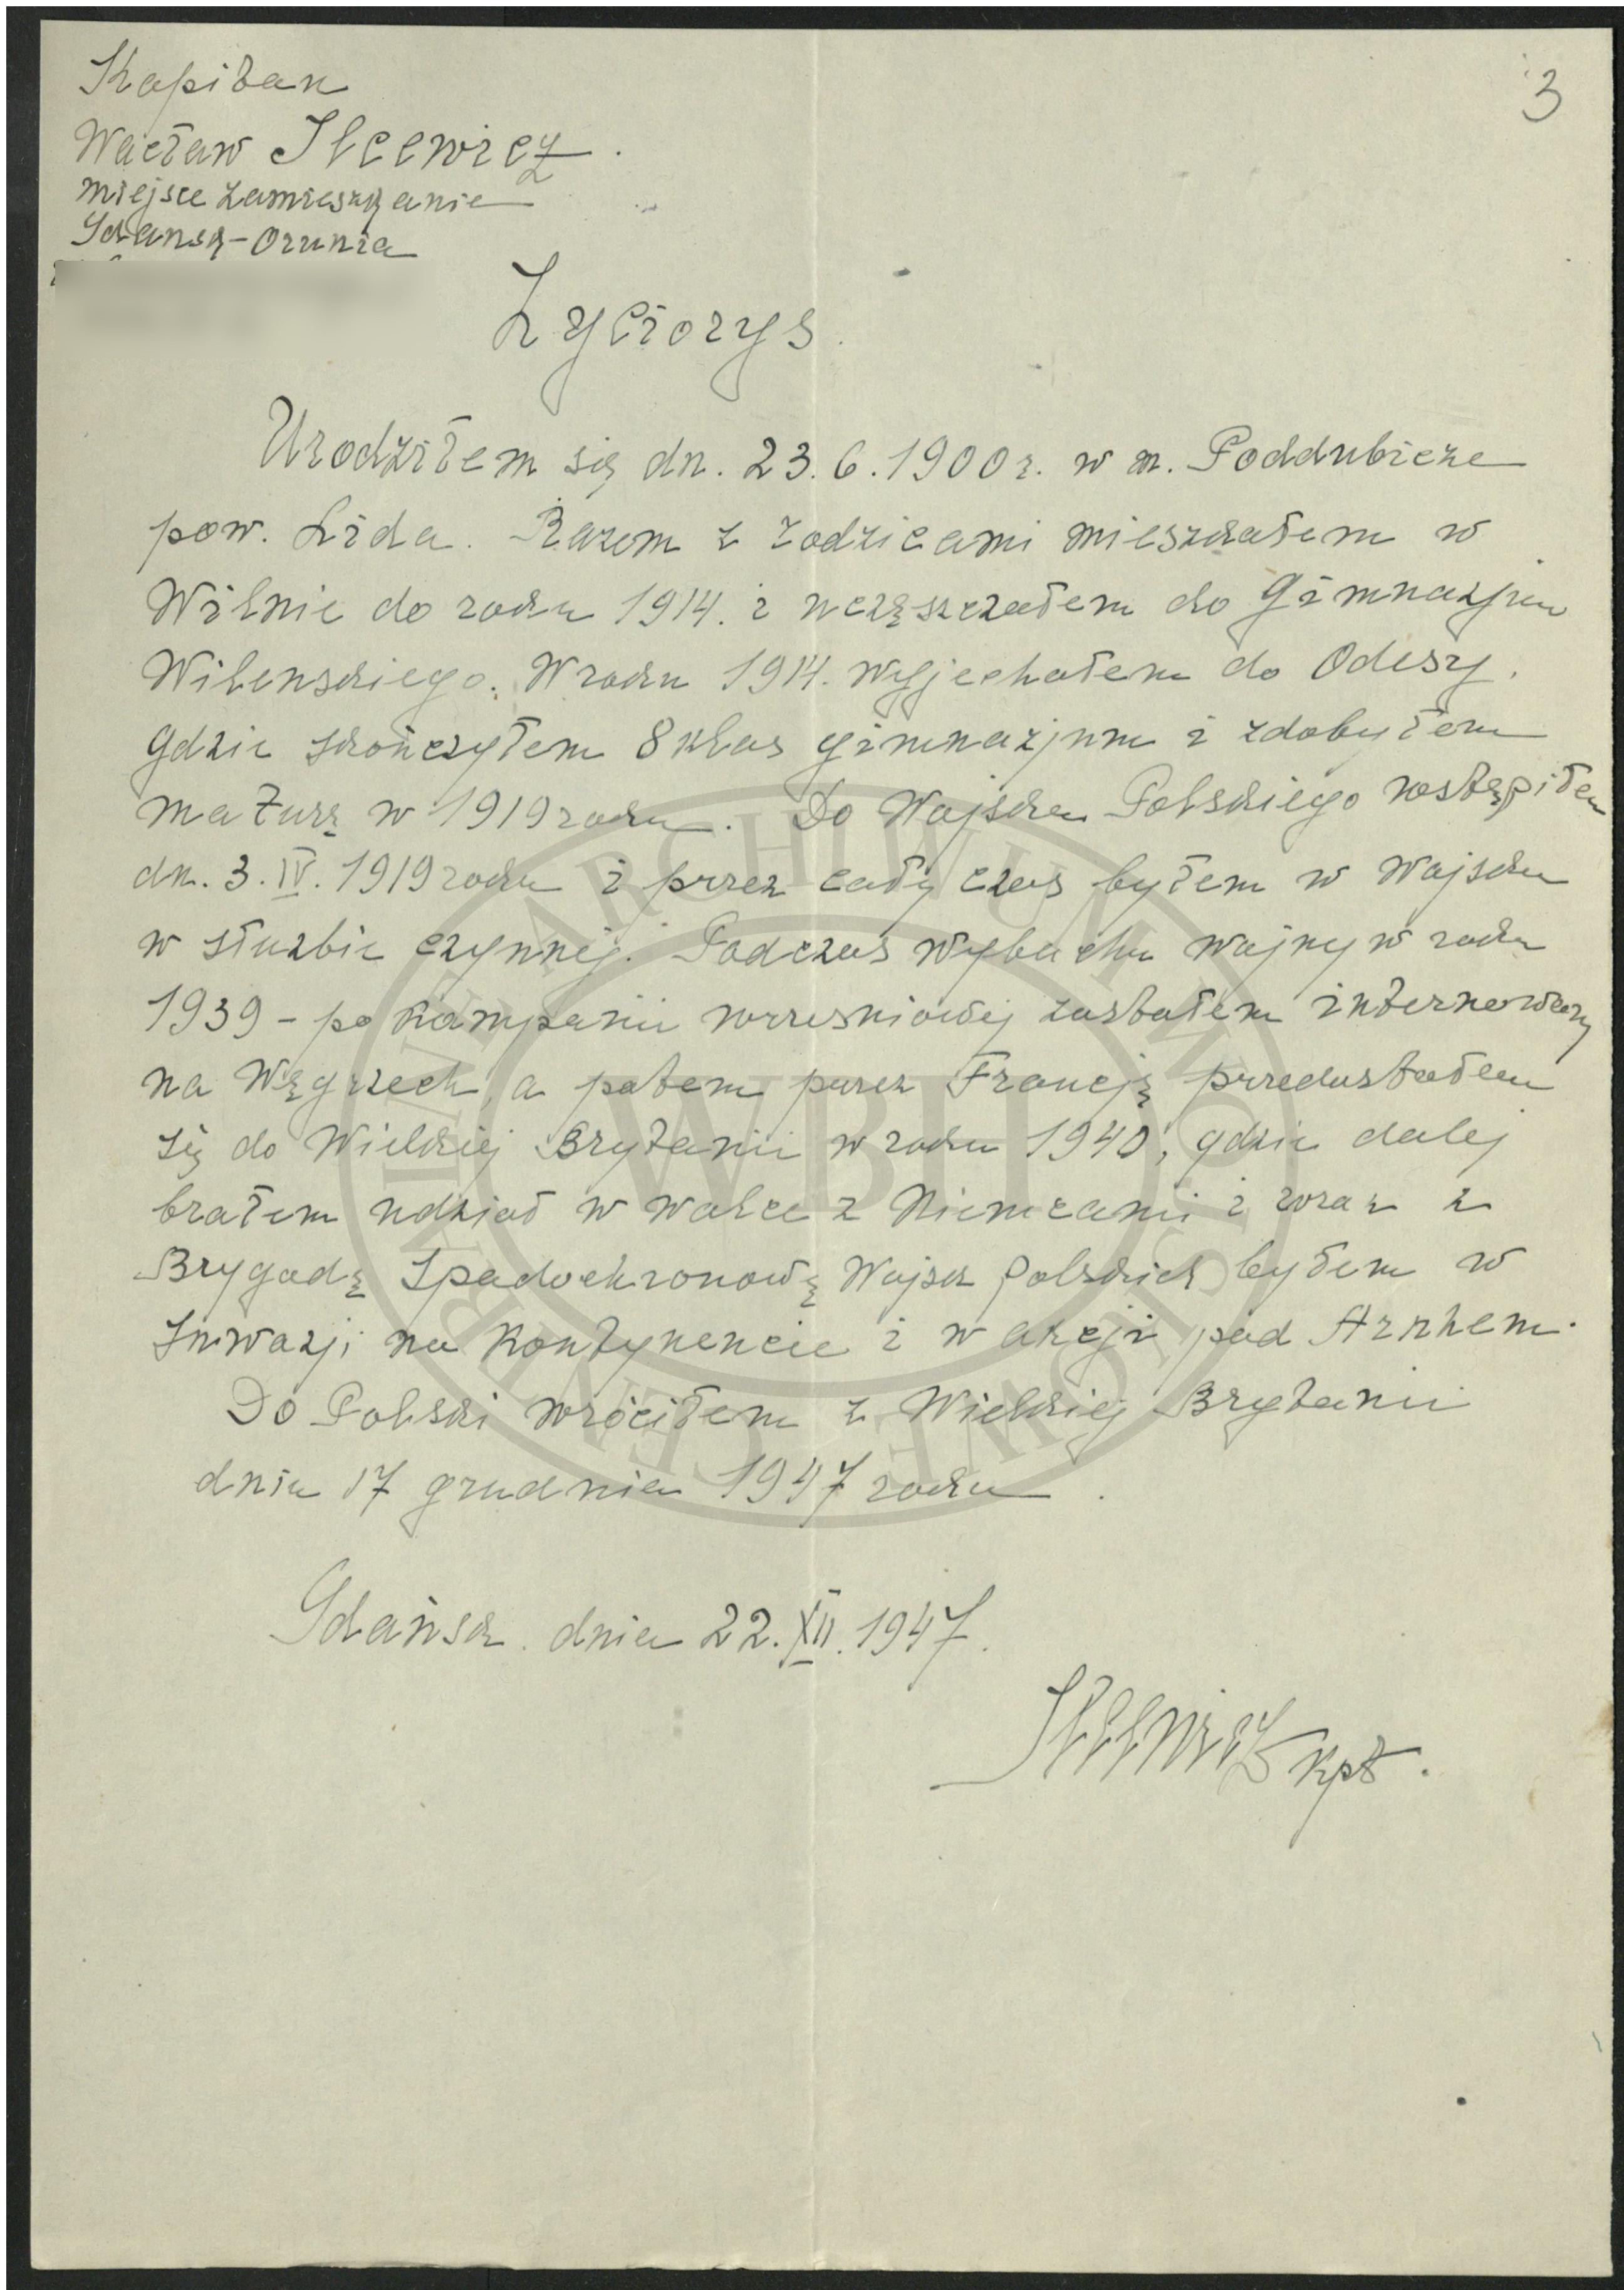 3
Kapitan
Wacław Ilcewicz.
miejsce zamieszkanie
Gdańsk-Orunia
Życiorys.
Urodziłem się dn. 23.6.1900 r. w m. Poddubicze
pow. Lida. Razem z rodzicami mieszkałem w
Wilnie do roku 1914. i uczęszczałem do Gimnazjum
Wileńskiego. W roku 1914. wyjechałem do Odesy,
gdzie skończyłem 8 klas gimnazjum i zdobyłem
maturę w 1919 roku. Do Wojska Polskiego wstąpiłem
dn. 3.IV.1919 roku i przez cały czas byłem w Wojsku
w służbie czynnej. Podczas wybuchu wojny w roku
1939 - po kampanii wrześniowej zostałem internowany
na Węgrzech, a potem przez Francję przedostałem
się do Wielkiej Brytanii w roku 1940, gdzie dalej
brałem udział w walce z Niemcami i wraz z
Brygadą Spadochronową Wojsk Polskich byłem w
Inwazji na Kontynencie i w akcji pod Arnhem.
Do Polski wróciłem z Wielkiej Brytanii
dnia 17 grudnia 1947 roku.
Gdańsk. dnia 22.XII.1947.
Ilcewicz kpt.
CENTRALNE ARCHIWUM WOJSKOWE
WBH